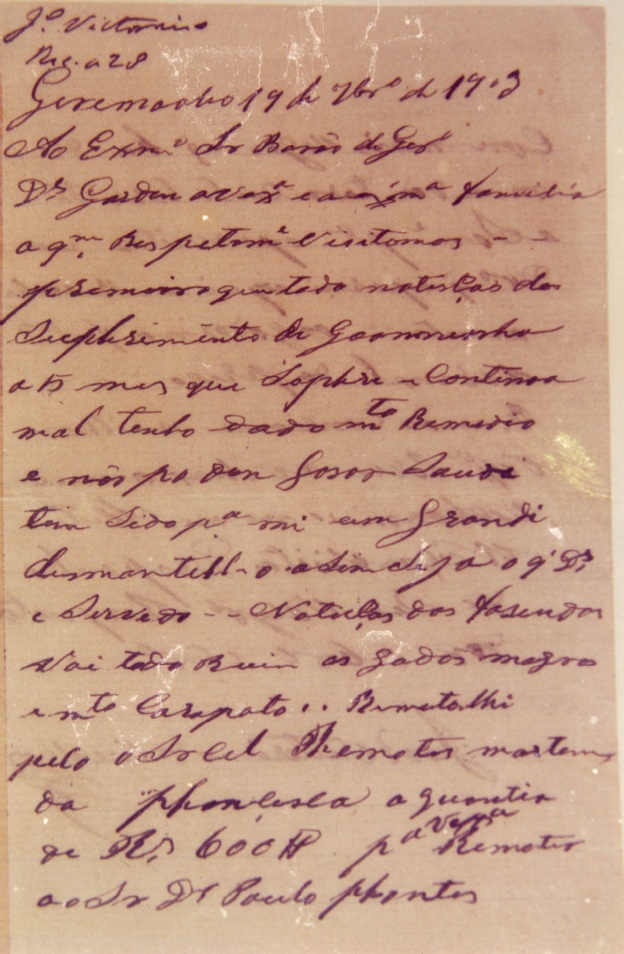 Jº Victorino
Rec. a 28
Geremoabo 19 de 7brº de 1903
Ao Exmº Sr Barão de Gerº
Ds Garden a Vexª e a exmª familia
a qm. Respetomte Visitomos - -
premeiro que tudo noticças dos
Suphrimento de
a 15 mes que Sophre e Continoa
mal tenho dado mto Remedio
e nós po den Gosar Saude
tem Sido pª mi um Grandi
desmantello asim Seja o q' Ds
e Servedo - - Noticças das fasendas
Vai todo Ruin os gados magros
e mto Carapato .. Remeta lhi
pelo o Sr Cel Themotes martens
da phonceca a quantia
de Rs 600$ pª Vexª Remeter
ao Sr Dr Paulo phontes